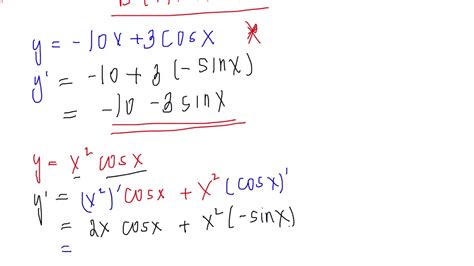 y = -10x + 3cosx
y' = -10 + 3(-sinx)
= -10 - 3sinx
y = x² cosx
y' = (x²)' cosx + x² (cosx)'
= 2x cosx + x² (-sinx)
=